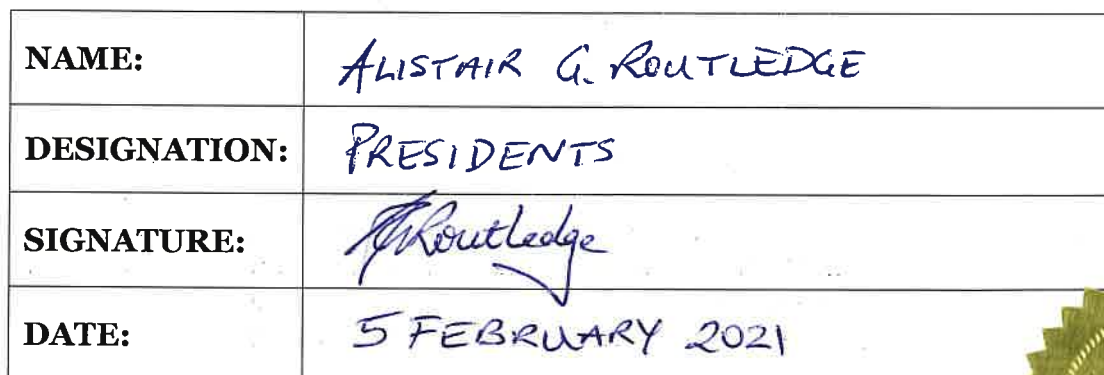 NAME: ALISTAIR G. ROUTLEDGE
DESIGNATION: PRESIDENTS
SIGNATURE: AGRoutledge
DATE: 5 FEBRUARY 2021